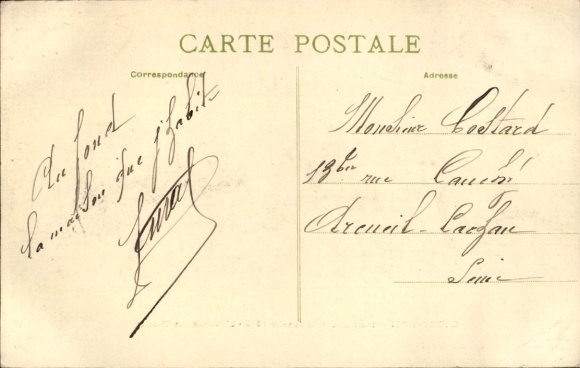 CARTE POSTALE
Correspondance
Adresse
Au fond
la maison que j'habite
Monsieur Costard
13 bis rue
Arcueil-Cachan
Seine